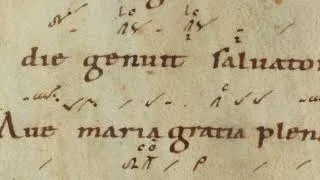 die genuit saluator
Aue maria gratia plena